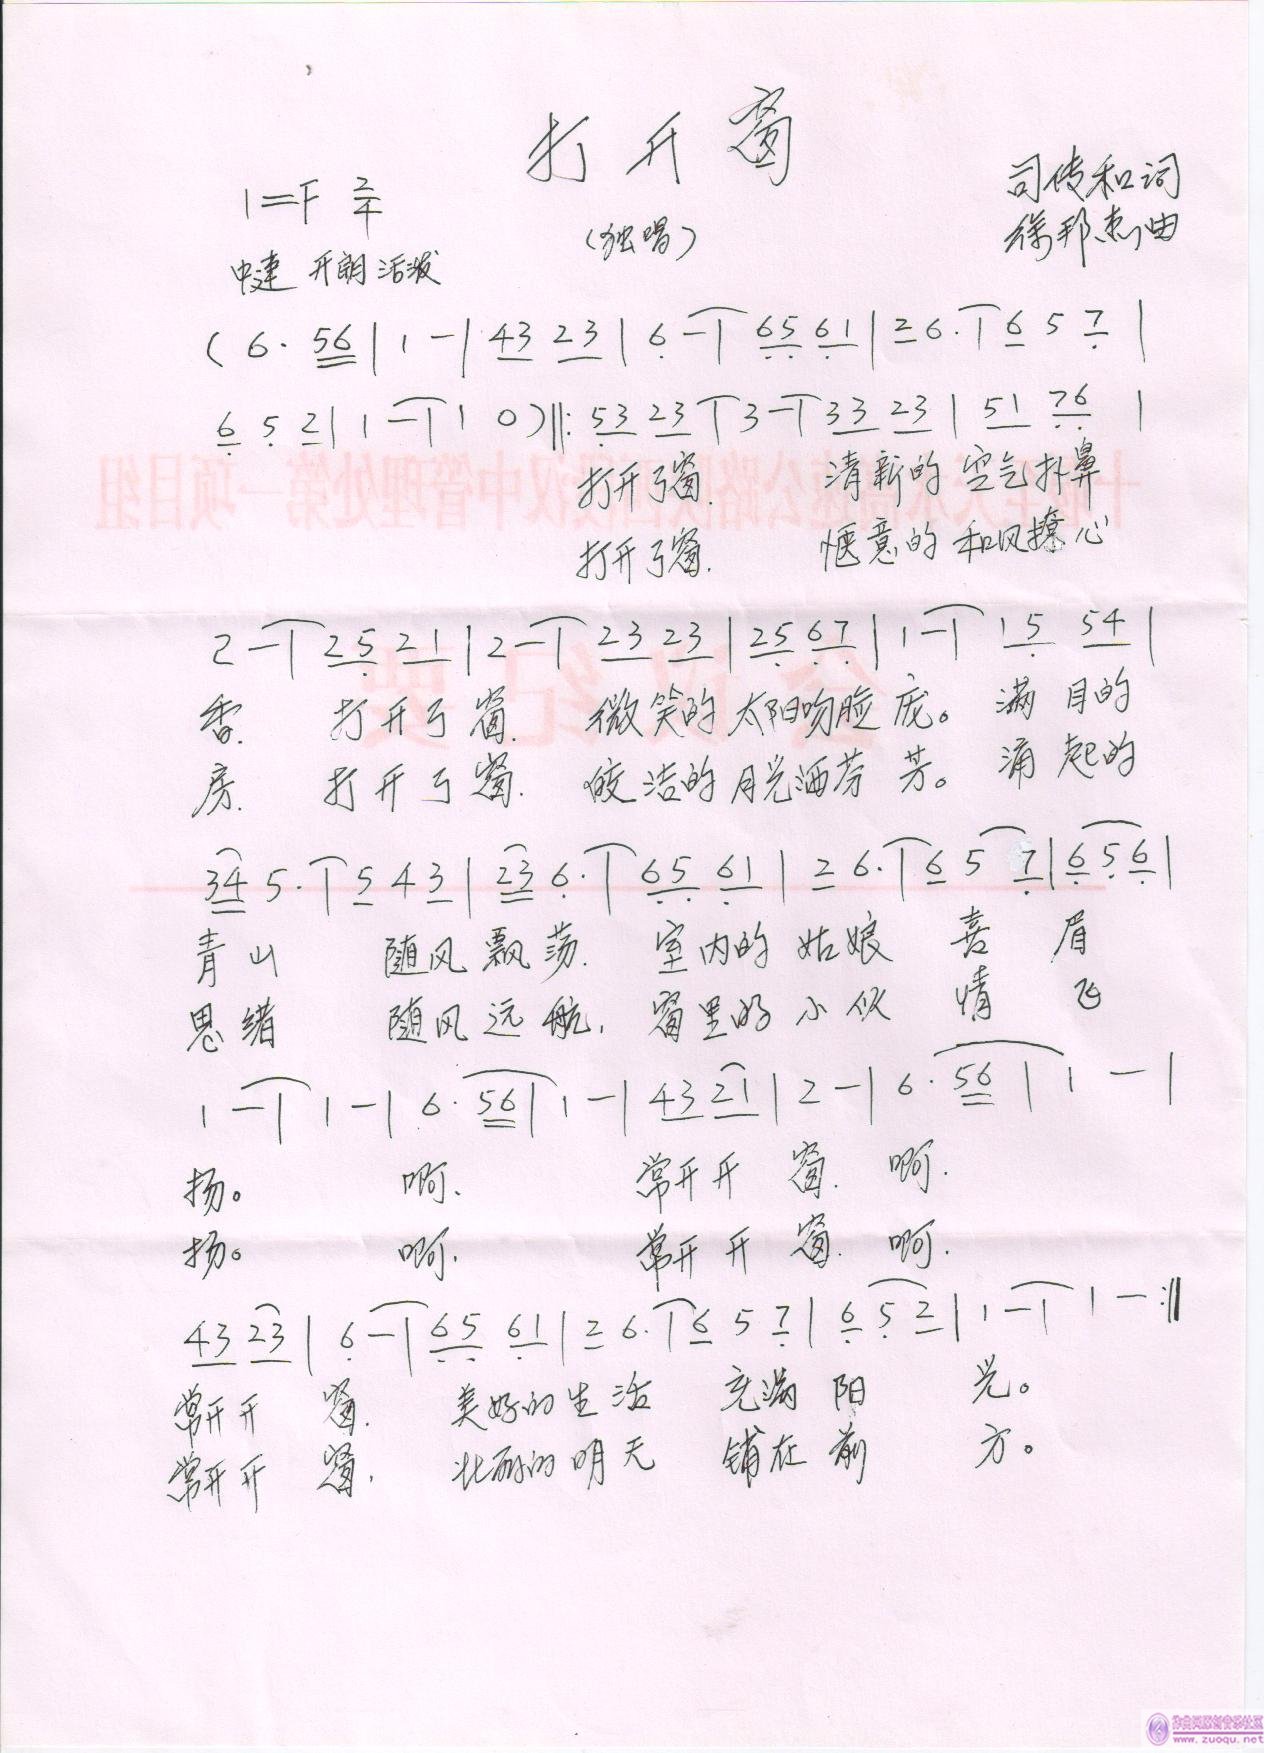 打开窗
1=F 2/4
(独唱)
司传和词
徐邦杰曲
中速 开朗 活泼
( 6· 56 | 1 - | 43 23 | 6 - | 65 61 | 2 6· | 6 5 7 |
6 5 2 | 1 - | 1 0 ) ‖: 53 23 | 3 - | 33 23 | 51 76 |
打开了窗. 清新的 空气扑鼻
打开了窗. 惬意的 和风撩心
2 - | 25 21 | 2 - | 23 23 | 25 67 | 1 - | 15 54 |
香. 打开了窗. 微笑的 太阳吻脸庞。 满目的
房. 打开了窗. 皎洁的 月光洒芬芳。 涌起的
34 5· | 5 4 3 | 23 6· | 65 61 | 2 6· | 6 5 7 | 6 5 6 |
青山 随风飘荡. 室内的 姑娘 喜 眉
思绪 随风远航, 窗里的 小伙 情 飞
1 - | 1 - | 6· 56 | 1 - | 43 21 | 2 - | 6· 56 | 1 - |
扬。 啊. 常开开 窗. 啊.
扬。 啊. 常开开 窗. 啊.
43 23 | 6 - | 65 61 | 2 6· | 6 5 7 | 6 5 2 | 1 - | 1 - :‖
常开开 窗. 美好的生活 充满 阳 光。
常开开 窗, 壮丽的明天 铺在 前 方。
十堰至天水高速公路陕西段汉中管理处第一项目组
会议纪要
作曲网原创音乐社区
www.zuoqu.net